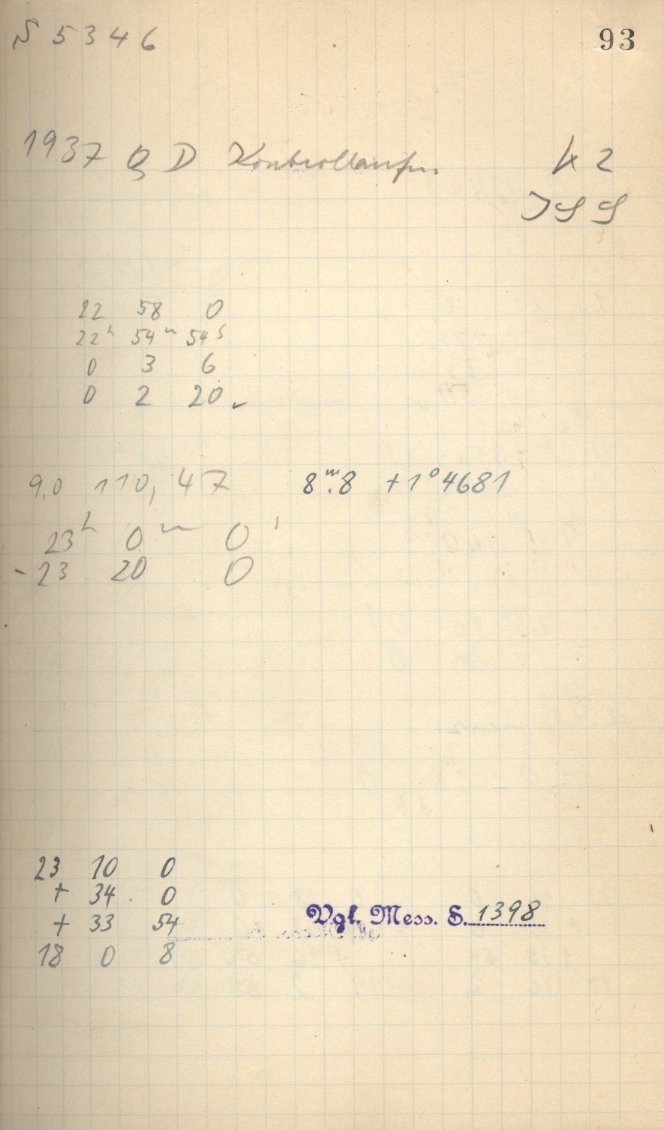 S 5346 93
1937 Q D Kontrollaufn. K 2
22 58 0
22h 54m 54s
0 3 6
0 2 20
9,0 110,47 8m.8 +1°4681
23h 0m 0s
-23 20 0
23 10 0
+ 34 0
+ 33 54
18 0 8
Vgl. Mess. S. 1398